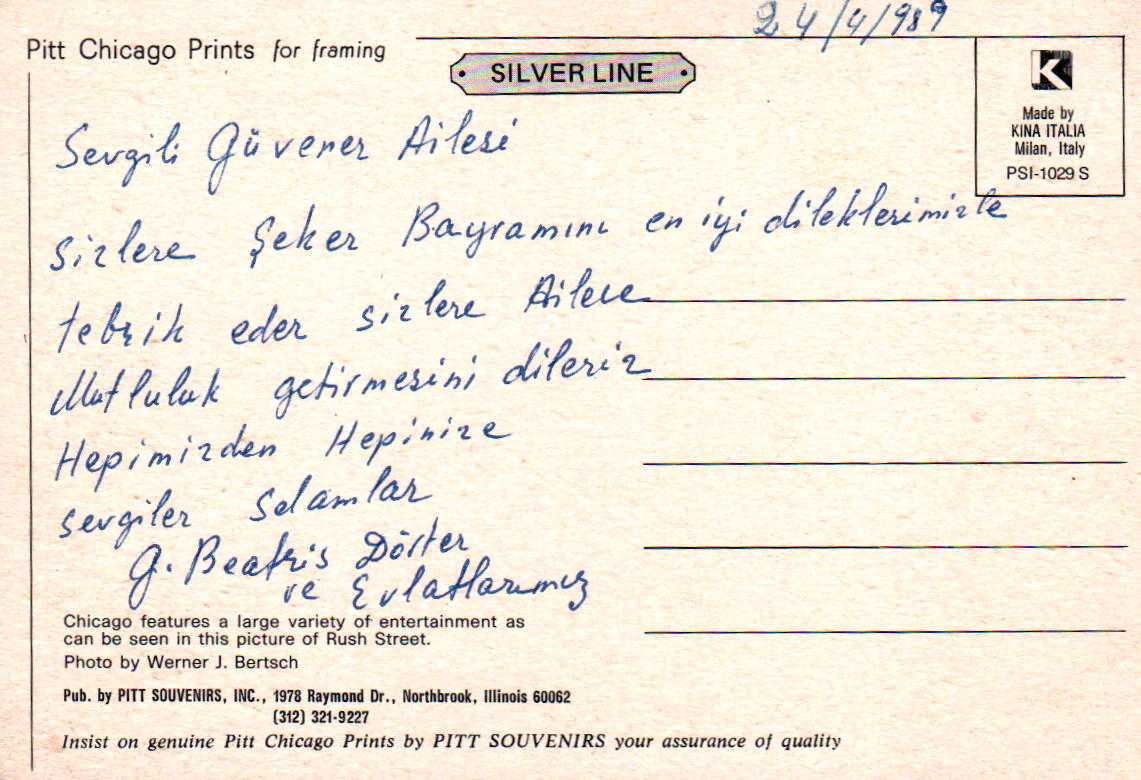 24/4/989
Pitt Chicago Prints for framing
SILVER LINE
K
Made by
KINA ITALIA
Milan, Italy
PSI-1029 S
Sevgili Güvener Ailesi
sizlere Şeker Bayramını en iyi dileklerimizle
tebrik eder sizlere Ailece
Mutluluk getirmesini dileriz
Hepimizden Hepinize
sevgiler selamlar
G. Beatris Dörter
ve Evlatlarımız
Chicago features a large variety of entertainment as
can be seen in this picture of Rush Street.
Photo by Werner J. Bertsch
Pub. by PITT SOUVENIRS, INC., 1978 Raymond Dr., Northbrook, Illinois 60062
(312) 321-9227
Insist on genuine Pitt Chicago Prints by PITT SOUVENIRS your assurance of quality